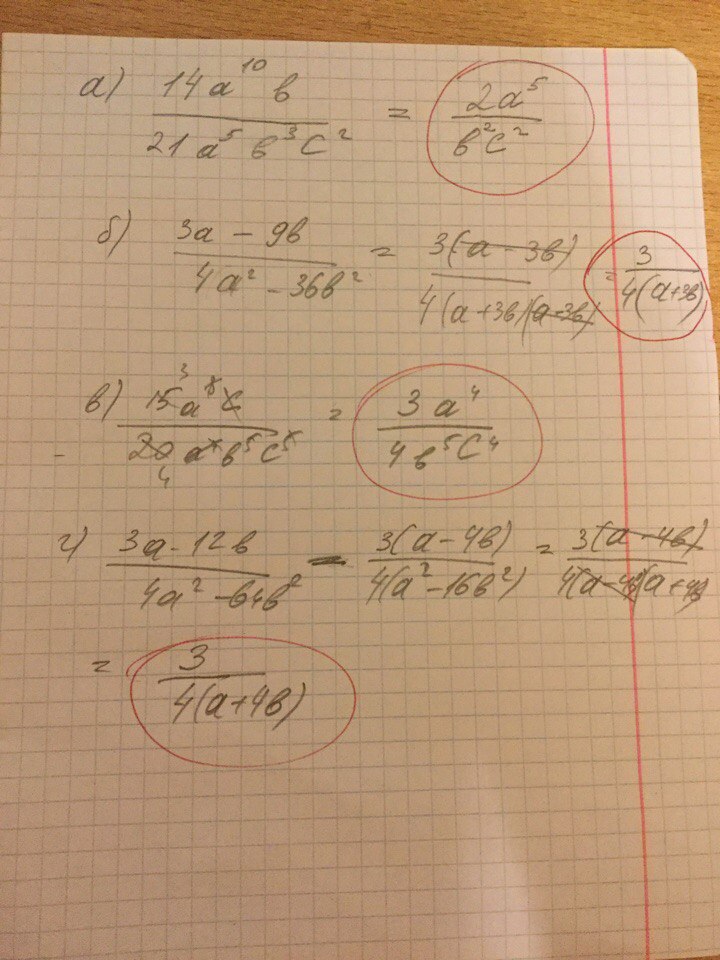 а) 14a^10 b / 21 a^5 b^3 c^2 = 2a^5 / b^2 c^2
б) 3a - 9b / 4a^2 - 36b^2 = 3(a - 3b) / 4(a+3b)(a-3b) = 3 / 4(a+3b)
в) 15 3 a^8 c / 20 4 a^4 b^5 c^5 = 3 a^4 / 4 b^5 c^4
г) 3a - 12b / 4a^2 - 64b^2 = 3(a - 4b) / 4(a^2 - 16b^2) = 3(a - 4b) / 4(a-4b)(a+4b)
= 3 / 4(a+4b)